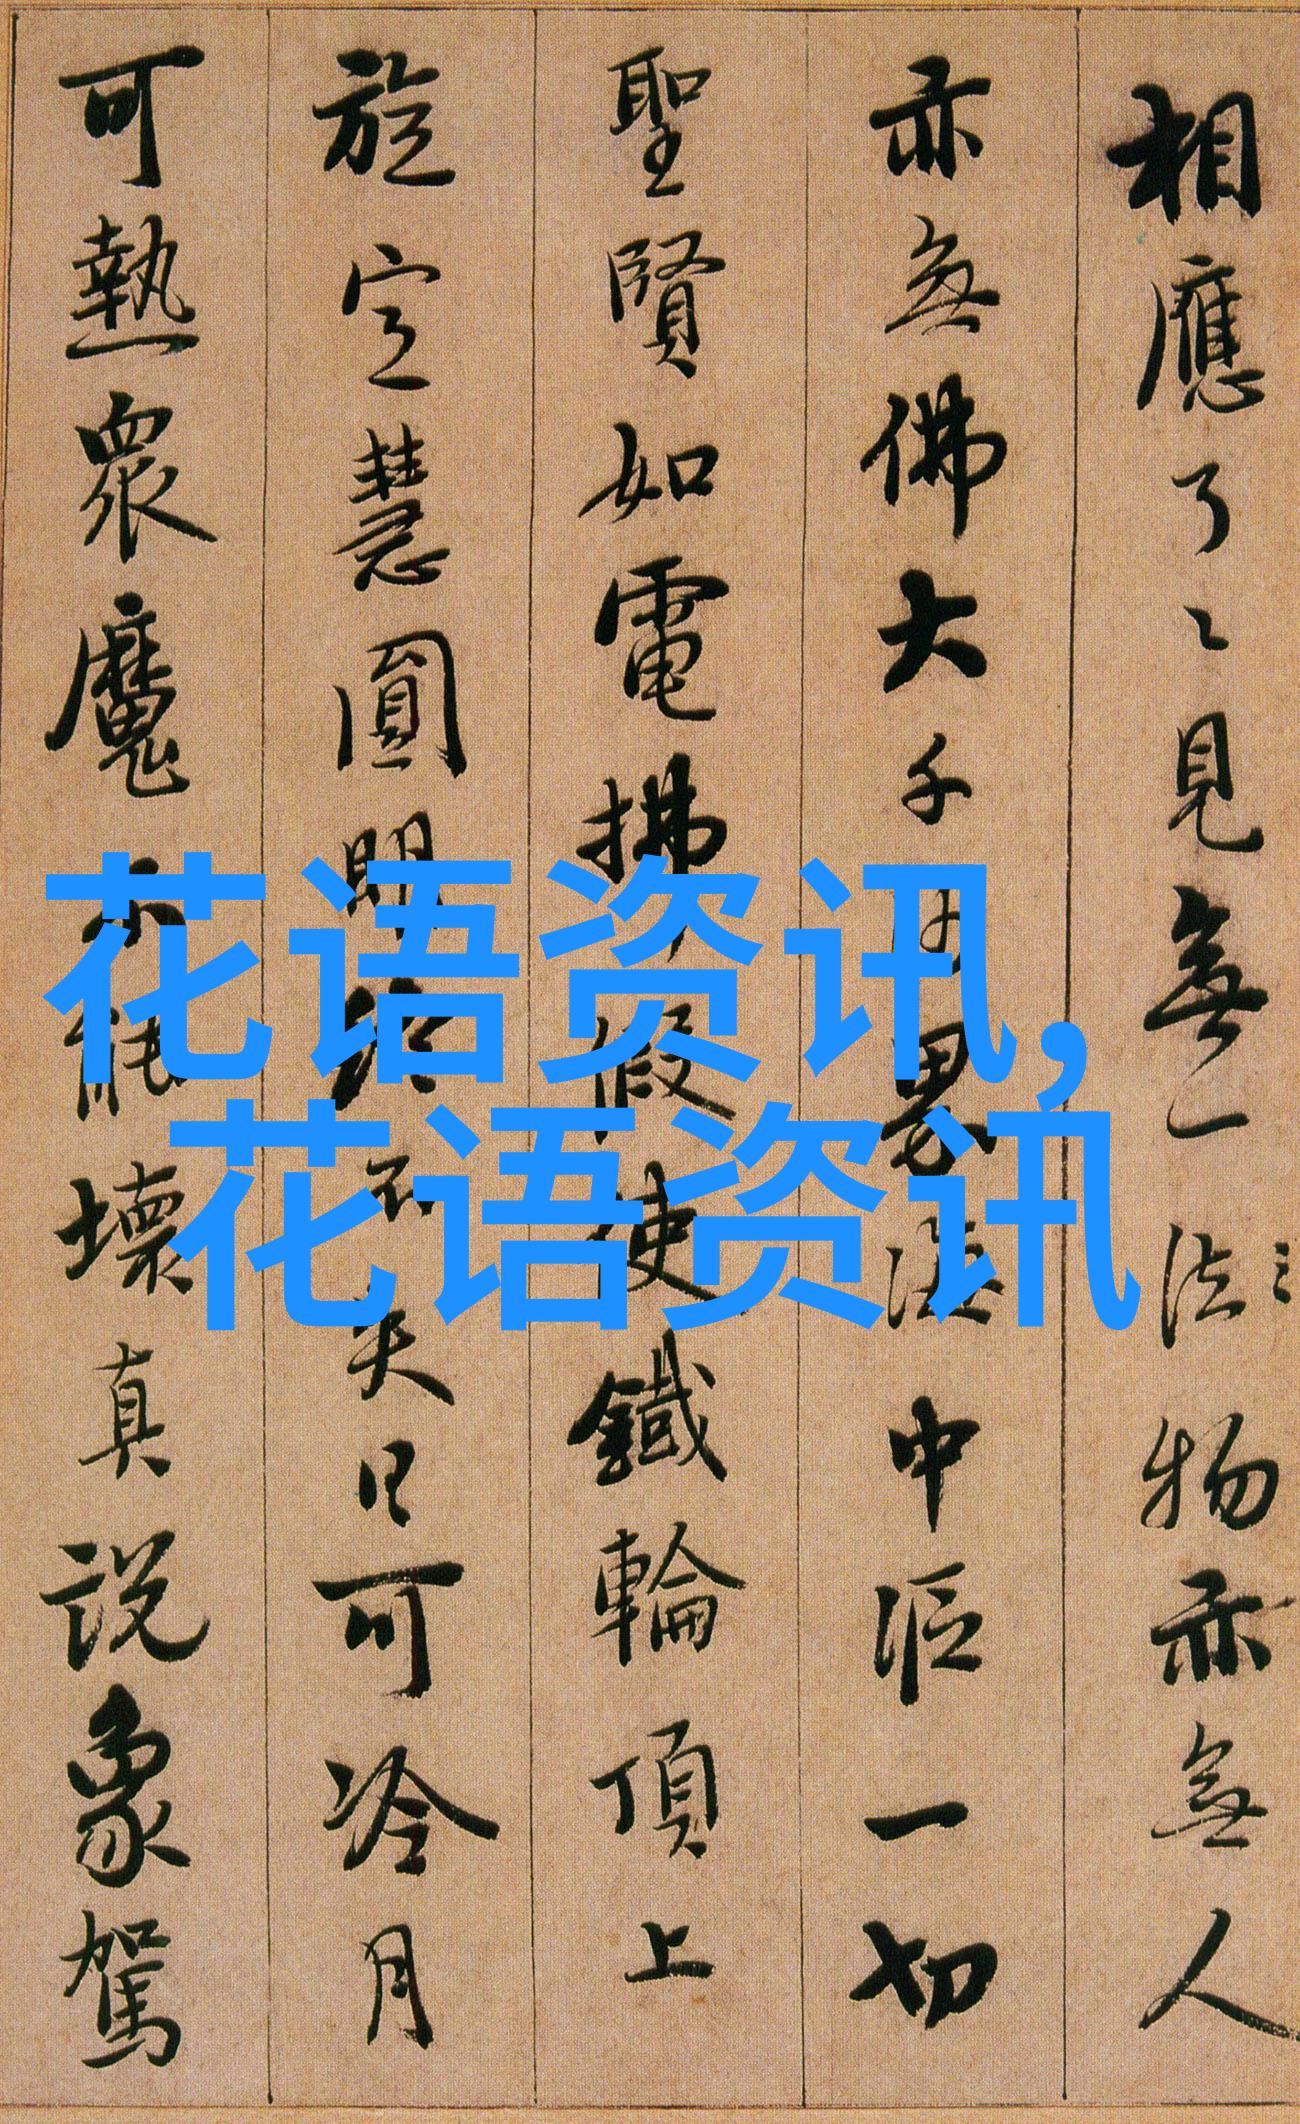 相應了〻見無一法物亦無人
亦無佛大千
中漚一切
聖賢如電拂
假使鐵輪頂上
旋定慧圓明終不失日可冷月
可熱眾魔不能壞真說象駕
花语资讯,
花语资讯